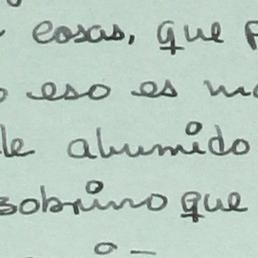 cosas, que
eso es
alumido
sobrino que